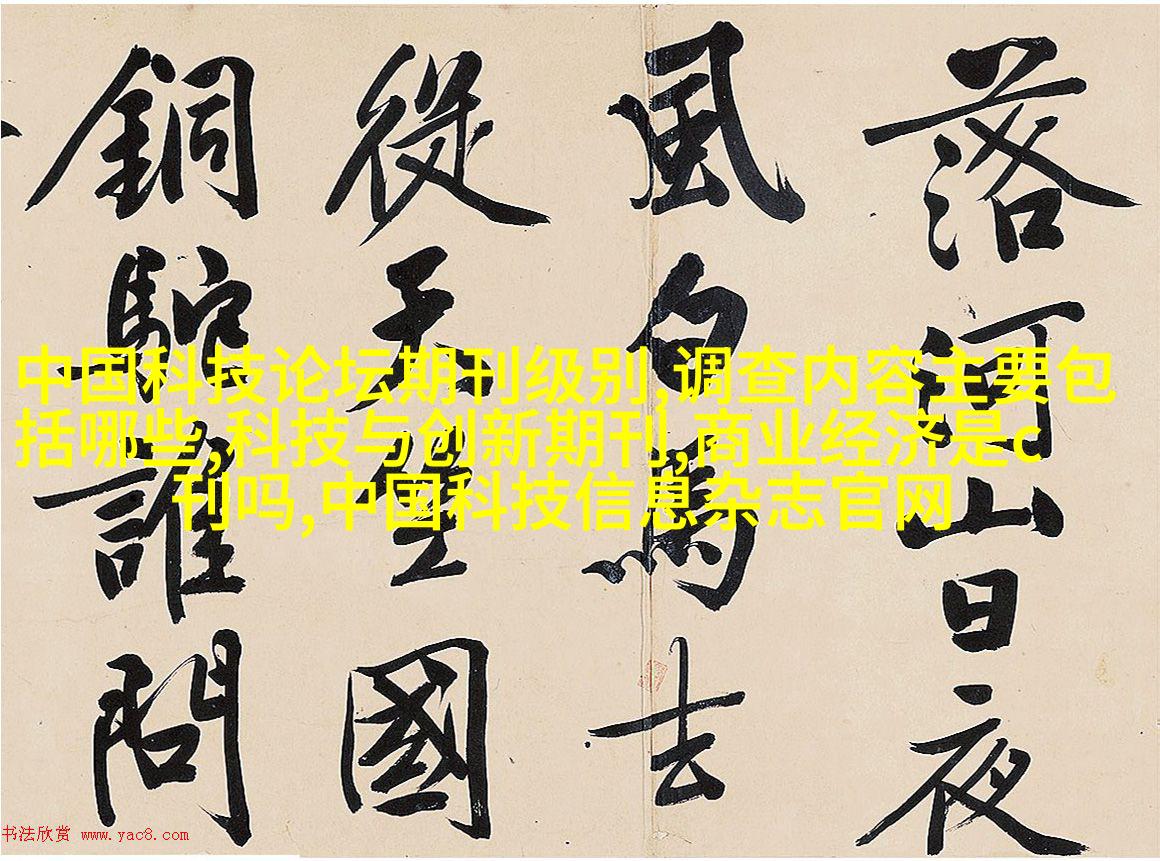 落河山日夜
風白馬去
從天國
銅駝誰問
中国科技论坛期刊级别,调查内容主要包
括哪些,科技与创新期刊,商业经济是c
刊吗,中国科技信息杂志官网
书法欣赏 www.yac8.com